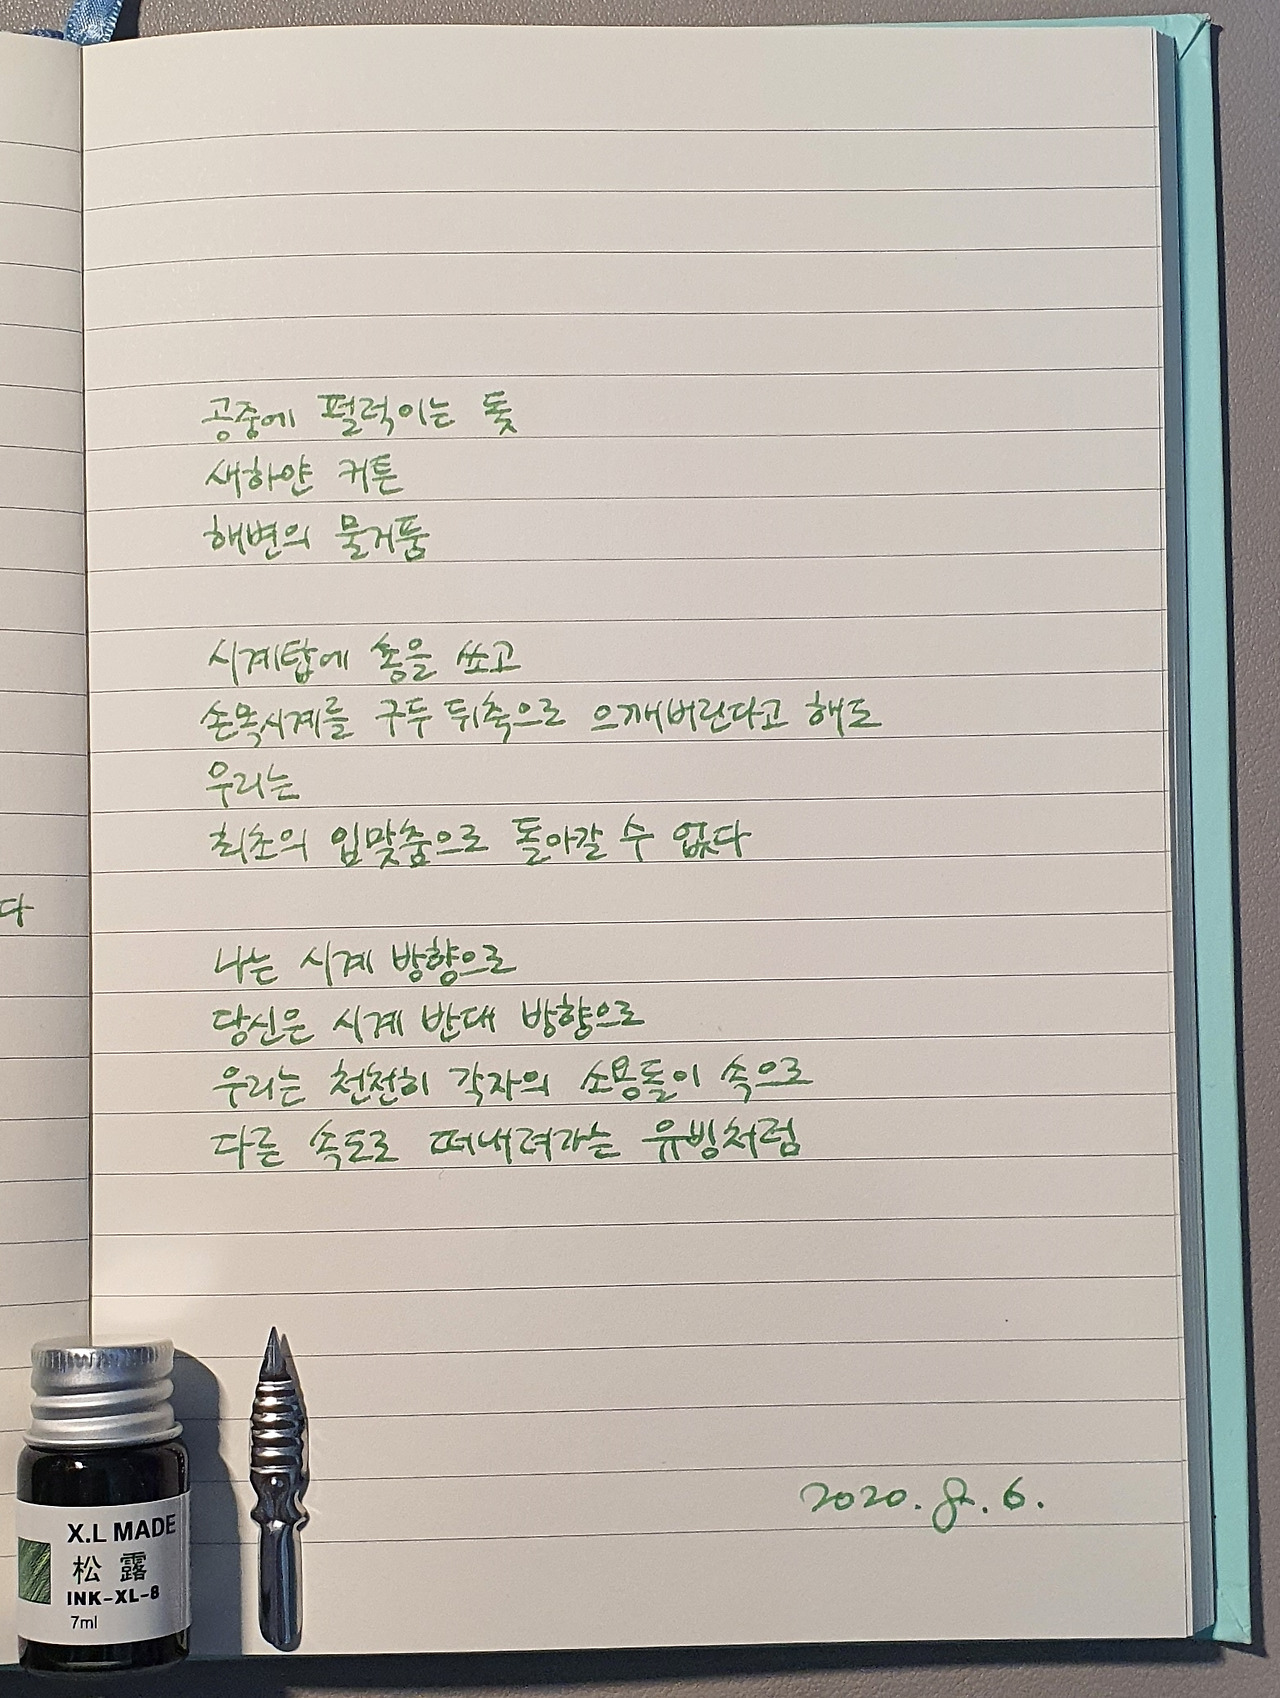 공중에 펄럭이는 돛
새하얀 커튼
해변의 물거품
시계탑에 총을 쏘고
손목시계를 구두 뒤축으로 으깨버린다고 해도
우리는
최초의 입맞춤으로 돌아갈 수 없다
다
나는 시계 방향으로
당신은 시계 반대 방향으로
우리는 천천히 각자의 소용돌이 속으로
다른 속도로 떠내려가는 유빙처럼
2020. 8. 6.
X.L MADE
松 露
INK-XL-8
7ml